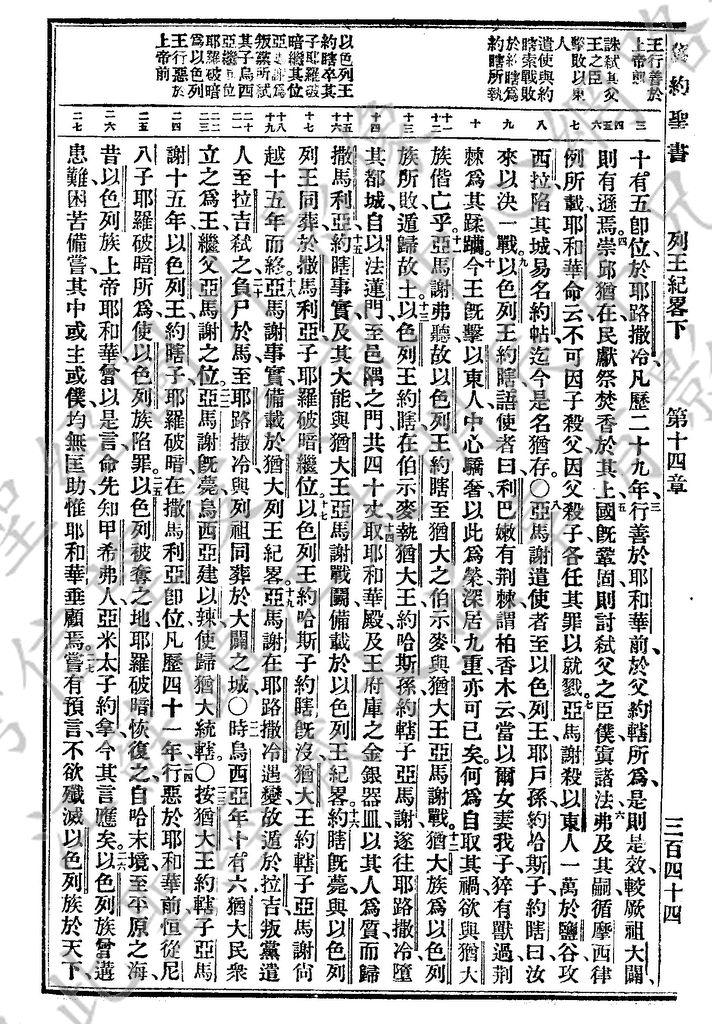 舊約聖書 列王紀畧下 第十四章 三百四十四
王行善於
上帝前
誅弑其父
王之臣
擊敗以東
人
遣使與約
瞎索戰敗
於約瞎爲
約瞎所執
以色列王
約瞎卒其
子耶羅破
暗繼其位
亞馬謝爲
叛黨所弑
其子烏西
亞繼其位
耶羅破暗
爲以色列
王行惡於
上帝前
三
四
五
六
七
八
九
十
十一
十二
十三
十四
十五
十六
十七
十八
十九
二十
二一
二二
二三
二四
二五
二六
二七
十有五卽位於耶路撒冷凡歷二十九年行善於耶和華前於父約轄所爲是則是效較厥祖大闢
則有遜焉崇邱猶在民獻祭焚香於其上國旣鞏固則討弑父之臣僕寘諸法弗及其嗣循摩西律
例所載耶和華命云不可因子殺父因父殺子各任其罪以就戮亞馬謝殺以東人一萬於鹽谷攻
西拉陷其城易名約帖迄今是名猶存〇亞馬謝遣使者至以色列王耶戶孫約哈斯子約瞎曰汝
來以決一戰以色列王約瞎語使者曰利巴嫩有荆棘謂柏香木云當以爾女妻我子猝有獸過荆
棘爲其蹂躪今王旣擊以東人中心驕奢以此爲榮深居九重亦可已矣何爲自取其禍欲與猶大
族偕亡乎亞馬謝弗聽故以色列王約瞎至猶大之伯示麥與猶大王亞馬謝戰猶大族爲以色列
族所敗遁歸故土以色列王約瞎在伯示麥執猶大王約哈斯孫約轄子亞馬謝遂往耶路撒冷墮
其都城自以法蓮門至邑隅之門共四十丈取耶和華殿及王府庫之金銀器皿以其人爲質而歸
撒馬利亞約瞎事實及其大能與猶大王亞馬謝戰鬪備載於以色列王紀畧約瞎旣薨與以色列
列王同葬於撒馬利亞子耶羅破暗繼位以色列王約哈斯子約瞎旣沒猶大王約轄子亞馬謝尚
越十五年而終亞馬謝事實備載於猶大列王紀畧亞馬謝在耶路撒冷遇變故遁於拉吉叛黨遣
人至拉吉弑之負尸於馬至耶路撒冷與列祖同葬於大闢之城〇時烏西亞年十有六猶大民衆
立之爲王繼父亞馬謝之位亞馬謝旣薨烏西亞建以辣使歸猶大統轄〇按猶大王約轄子亞馬
謝十五年以色列王約瞎子耶羅破暗在撒馬利亞卽位凡歷四十一年行惡於耶和華前恒從尼
八子耶羅破暗所爲使以色列族陷罪以色列被奪之地耶羅破暗恢復之自哈末境至平原之海
昔以色列族上帝耶和華曾以是言命先知甲希弗人亞米太子約拿今其言應矣以色列族曾遘
患難困苦備嘗其中或主或僕均無匡助惟耶和華垂顧焉嘗有預言不欲殲滅以色列族於天下